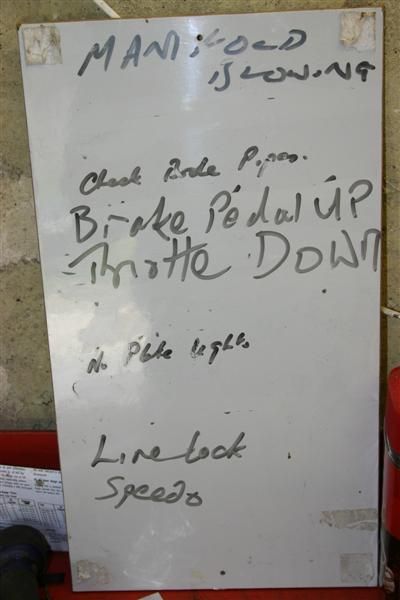 MANIFOLD
BLOWING
Check Brake Pipes.
Brake Pedal UP
Throttle DOWN
No Plate lights
Line lock
Speedo